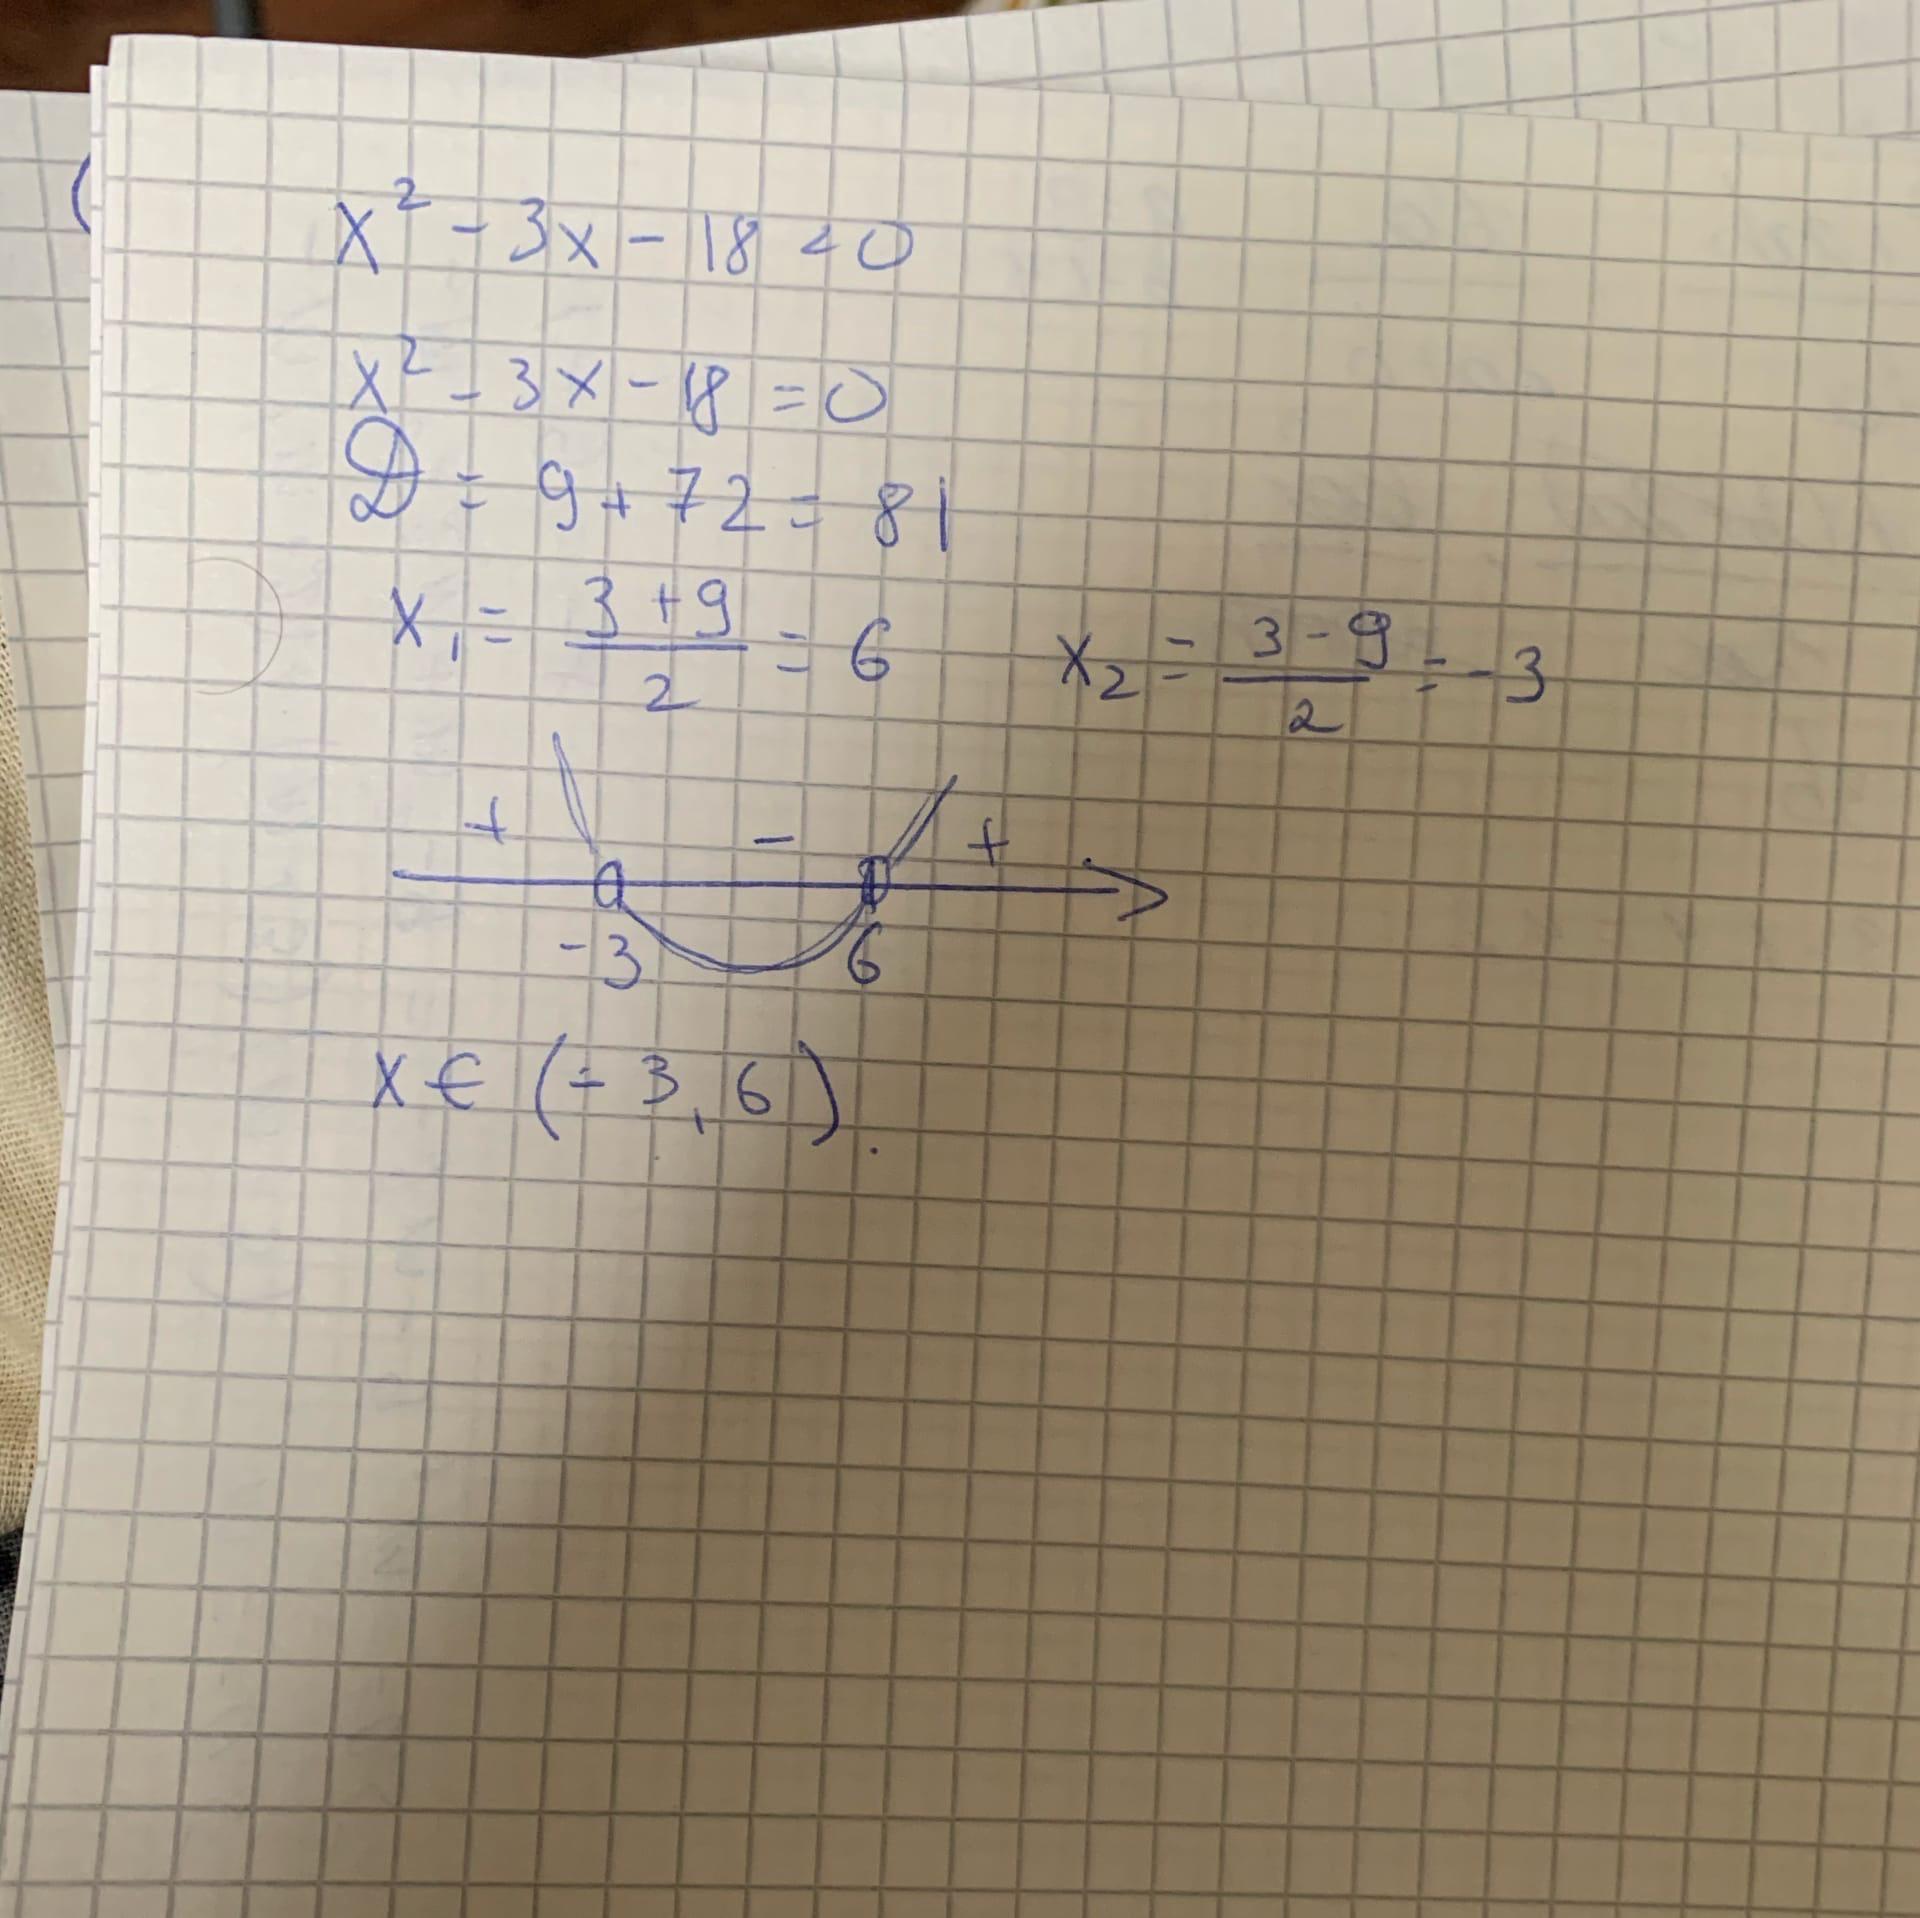 x² - 3x - 18 < 0
x² - 3x - 18 = 0
D = 9 + 72 = 81
x₁ = (3 + 9)/2 = 6    x₂ = (3 - 9)/2 = -3
+ - +
-3 6
x ∈ (-3, 6).